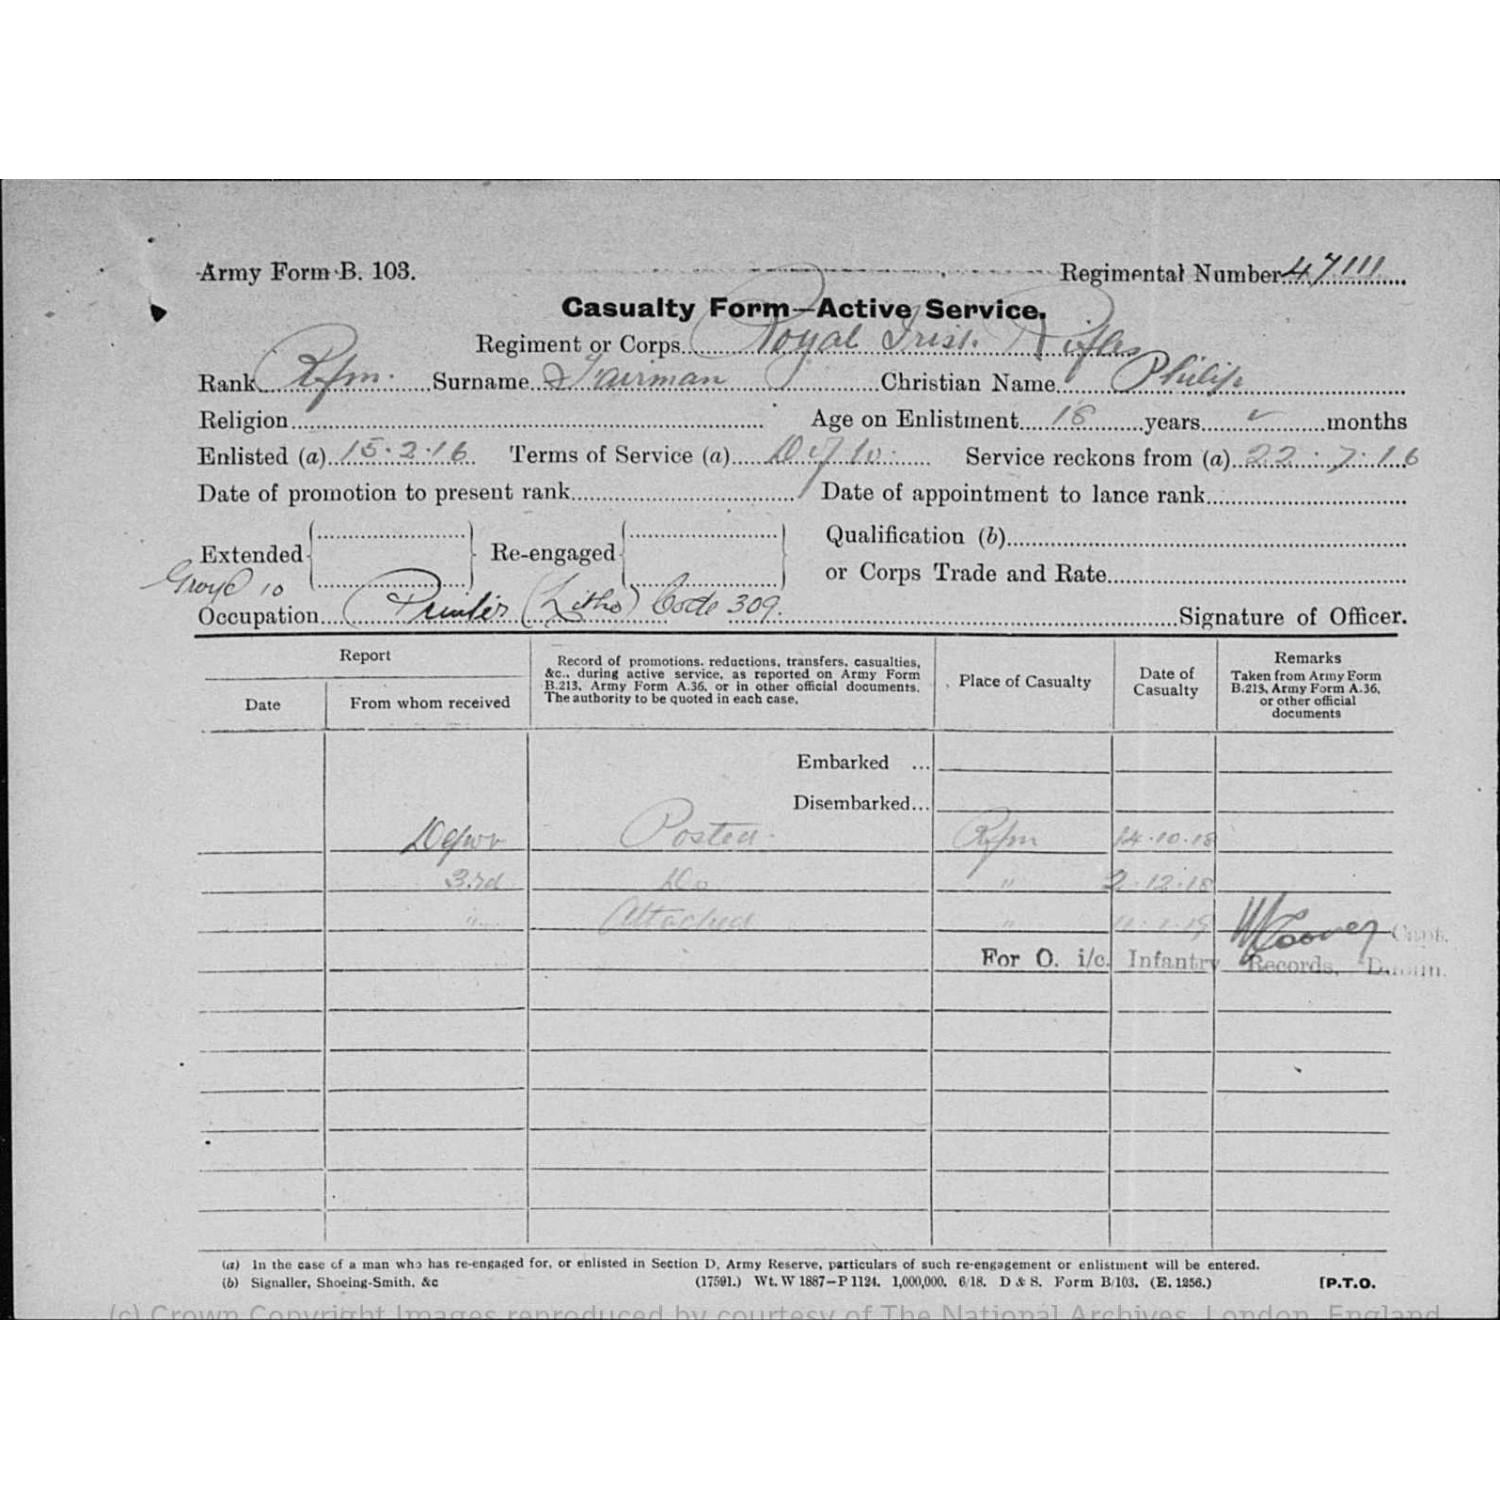 Army Form B. 103.
Regimental Number 47111
Casualty Form—Active Service.
Regiment or Corps Royal Irish Rifles
Rank Rfm. Surname Fairman Christian Name Philip
Religion Age on Enlistment 18 years months
Enlisted (a) 15.2.16 Terms of Service (a) Service reckons from (a) 22.7.16
Date of promotion to present rank Date of appointment to lance rank
Extended Re-engaged Qualification (b)
or Corps Trade and Rate
Group 10
Occupation Printer (Litho) Code 309. Signature of Officer.
Report
Date From whom received
Record of promotions, reductions, transfers, casualties,
&c., during active service, as reported on Army Form
B.213, Army Form A.36, or in other official documents.
The authority to be quoted in each case.
Place of Casualty
Date of
Casualty
Remarks
Taken from Army Form
B.213, Army Form A.36,
or other official
documents
Embarked ...
Disembarked...
Depot Posted Rfm 14.10.18
3rd Do " 2.12.18
" Attached " 11.1.19
Capt.
For O. i/c. Infantry Records, Dublin.
(a) In the case of a man who has re-engaged for, or enlisted in Section D, Army Reserve, particulars of such re-engagement or enlistment will be entered.
(b) Signaller, Shoeing-Smith, &c (17591.) Wt. W 1887—P 1124. 1,000,000. 6/18. D & S. Form B/103. (E. 1256.) [P.T.O.
(c) Crown Copyright Images reproduced by courtesy of The National Archives, London, England